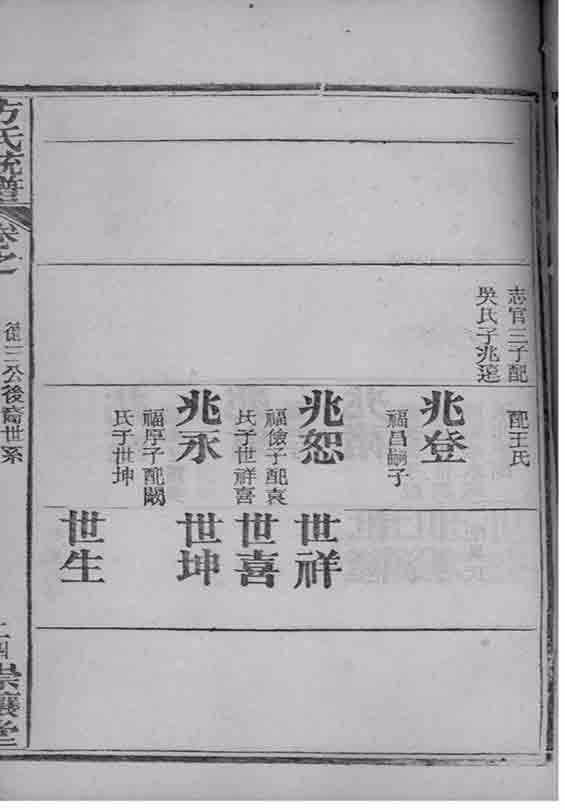 志官三子配
吳氏子兆逵
配王氏
兆登
福昌嗣子
兆恕
福儉子配袁
氏子世祥喜
兆永
福厚子配闞
氏子世坤
世祥
世喜
世坤
世生
方氏統譜
卷之
德三公後裔世系
崇讓堂